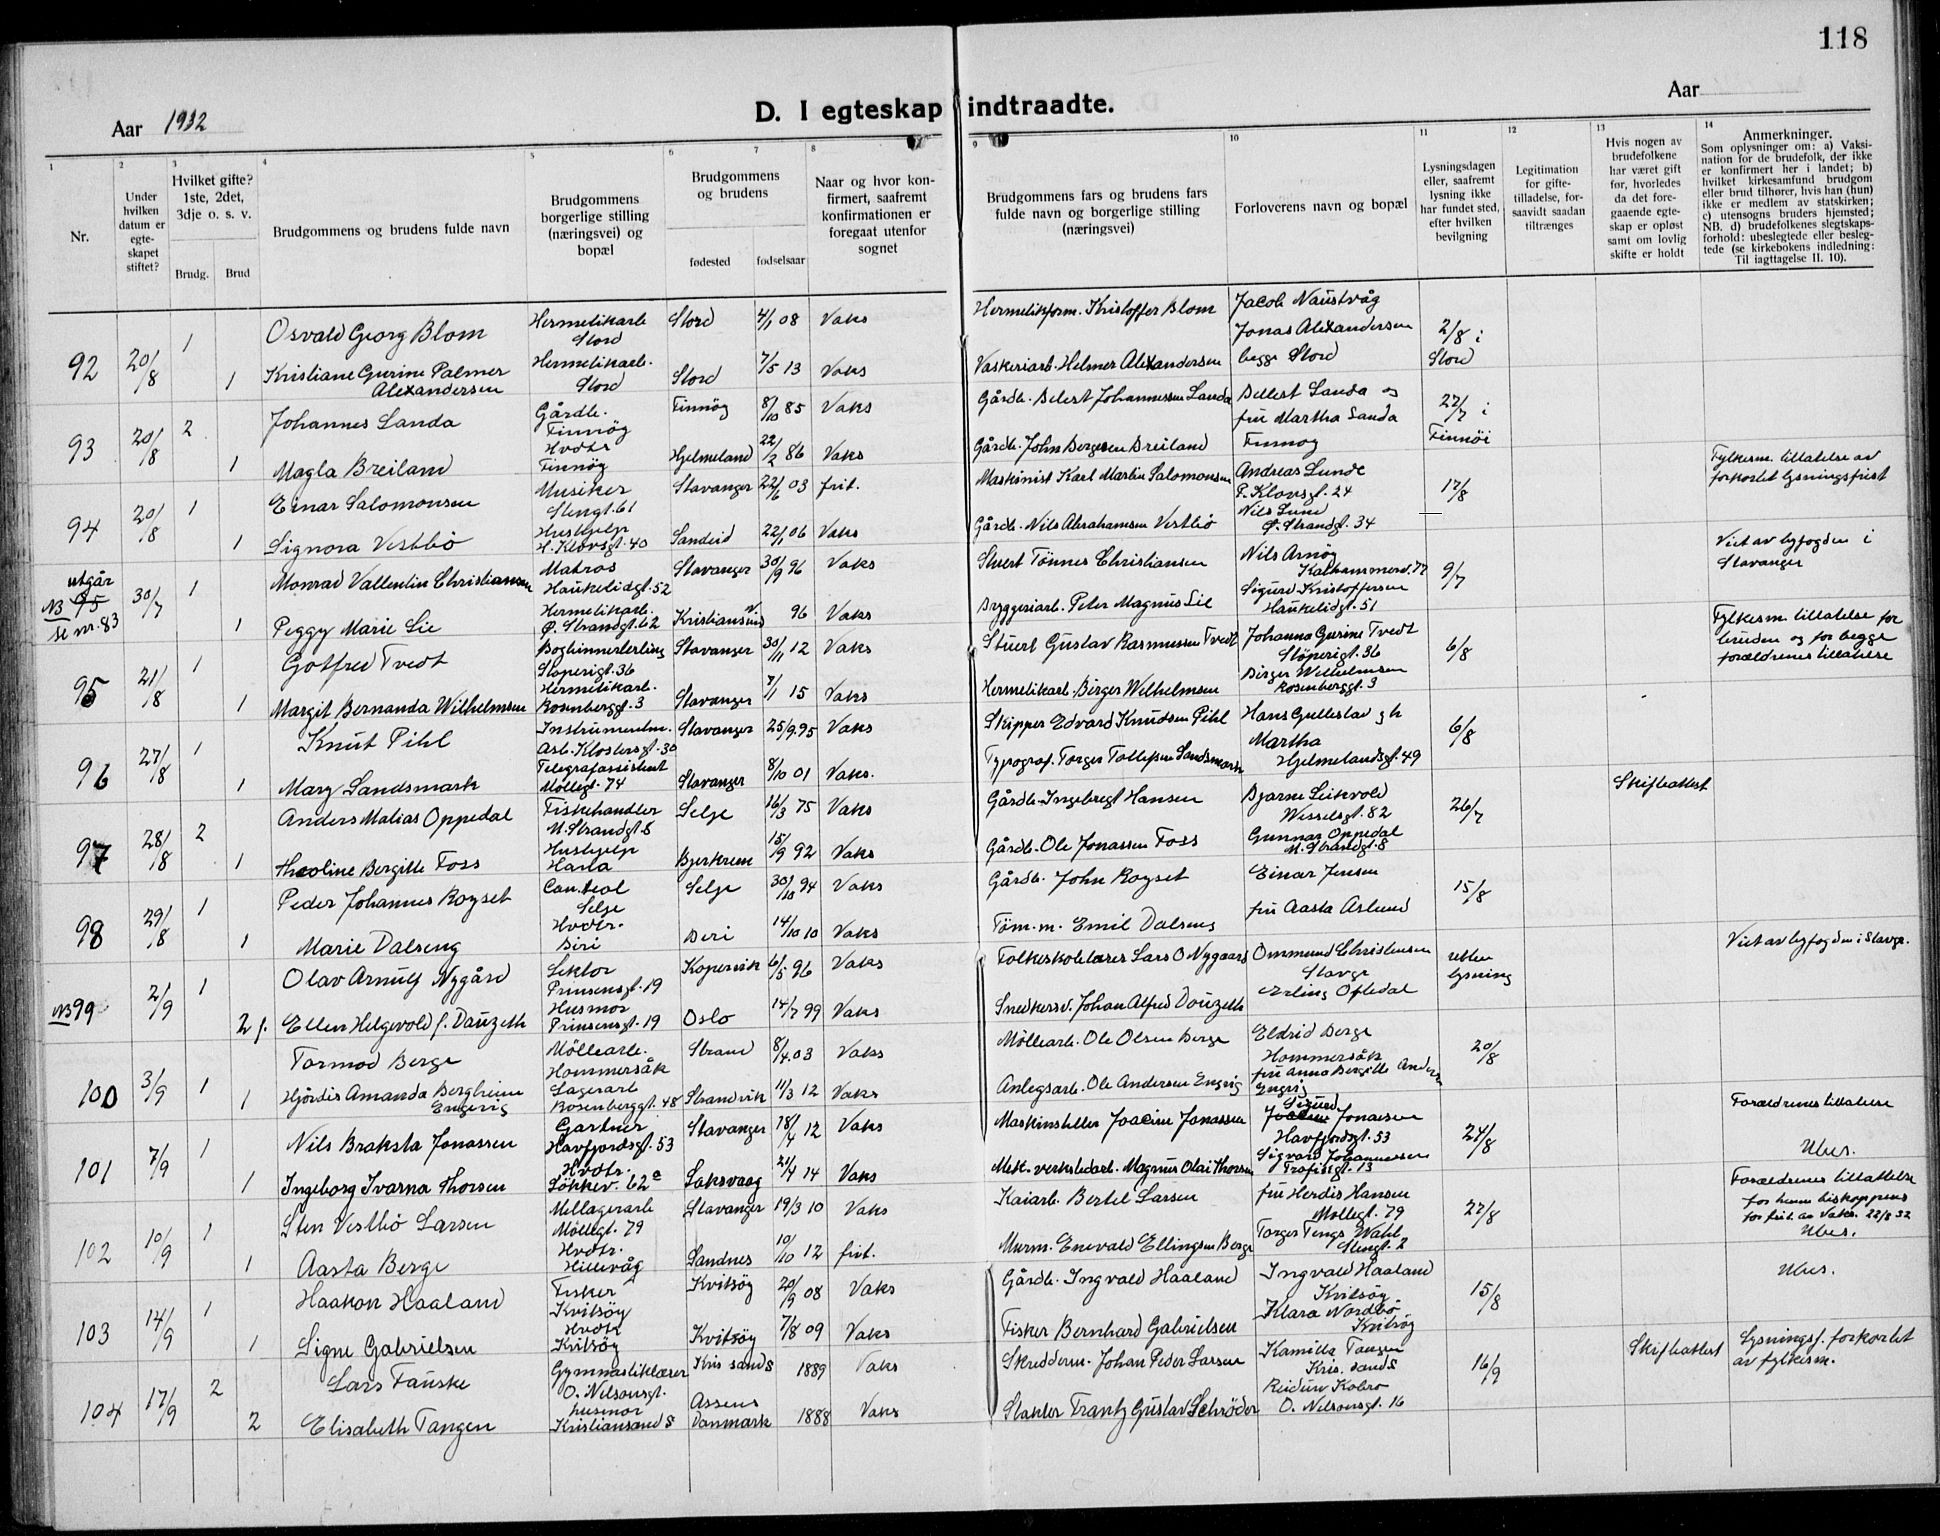 118
Aar 1932
D. I egteskap indtraadte.
Aar
1 2 3 4 5 6 7 8 9 10 11 12 13 14
Nr.
Under hvilken datum er egte-skapet stiftet?
Hvilket gifte? 1ste, 2det, 3dje o. s. v.
Brudg. Brud
Brudgommens og brudens fulde navn
Brudgommens borgerlige stilling (næringsvei) og bopæl
Brudgommens og brudens
fødested fødselsaar
Naar og hvor kon-firmert, saafremt konfirmationen er foregaat utenfor sognet
Brudgommens fars og brudens fars fulde navn og borgerlige stilling (næringsvei)
Forloverens navn og bopæl
Lysningsdagen eller, saafremt lysning ikke har fundet sted, efter hvilken bevilgning
Legitimation for gifte-tilladelse, for-saavidt saadan tiltrænges
Hvis nogen av brudefolkene har været gift før, hvorledes da det fore-gaaende egte-skap er opløst samt om lovlig skifte er holdt
Anmerkninger.
Som oplysninger om: a) Vaksi-nation for de brudefolk, der ikke er konfirmert her i landet; b) hvilket kirkesamfund brudgom eller brud tilhører, hvis han (hun) ikke er medlem av statskirken; c) utensogns bruders hjemsted; NB. d) brudefolkenes slegtskaps-forhold: ubeslegtede eller besleg-tede (se kirkebokens indledning: Til iagttagelse II. 10).
92 20/8 1 Osvald Georg Blom Hermetikarb Stord Stord 4/1 08 Vaks Hermetikform. Kristoffer Blom Jacob Naustvåg Jonas Alexandersen 2/8 i
1 Kristiane Gurine Palmer Alexandersen Hermetikarb. Stord Stord 7/5 13 Vaks Vaskeriarb. Helmer Alexandersen begge Stord Stord
93 20/8 2 Johannes Landa Gårdb. Finnøy Finnöy 8/10 85 Vaks Gårdb. Delest Johannessen Landa Dellest Landa og fru Martha Landa 22/7 i
1 Magla Breiland Hvdtr Finnöy Hjelmeland 22/2 86 Vaks Gårdb. John Bergesen Breiland Finnoy Finnöi
94 20/8 1 Einar Salomonsen Musiker Stengt. 61 Stavanger 22/6 03 frit. Maskinist Karl Martin Salomonsen Andreas Lunde P. Klovsgt. 24 17/8 Fylkesm. tillatelse av forkortet lysningsfrist
1 Signora Vestbö Hushjelp H. Klovsgt. 40 Sandeid 22/1 06 Vaks Gårdb. Nils Abrahamsen Vestbö Nils Lund Ø. Strandgt. 34
utgår NB 95 se nr. 83 30/7 1 Monrad Vallentin Christiansen Matros Haukelidgt. 52 Stavanger 30/9 96 Vaks Stuert Tönnes Christiansen Nils Arnöy Kalhammerv. 77 9/7 Viet av byfogden i Stavanger
1 Peggy Marie Lie Hermetikarb. Ø. Strandgt. 62 Kristiansund N 96 Vaks Bryggeriarb. Peter Magnus Lie Sigurd Kristoffersen Haukelidgt. 51
95 21/8 1 Gotfred Tvedt Bogbinnerlerling Stöperigt. 36 Stavanger 30/11 12 Vaks Stuert Gustav Rasmussen Tvedt Johanna Gurine Tvedt Stöperigt. 36 6/8 Fylkesm. tillatelse for bruden og for begge forældrenes tillatelse
1 Margit Bernanda Wilhelmsen Hermetikarb. Rosenberggt. 3 Stavanger 7/1 15 Vaks Hermetikarb. Birger Wilhelmsen Birger Wilhelmsen Rosenberggt. 3
96 27/8 1 Knut Pihl Instrumentm. Asb. Klostersgt. 30 Stavanger 25/9.95 Vaks Skipper Edvard Knudsen Pihl Hans Gullestad og h Martha 6/8
1 Mary Sandsmark Telegrafassistent Møllegt. 74 Stavanger 8/10 01 Vaks. Typograf. Torger Tollefsen Sandsmark Hjelmelandsgt. 49
97 28/8 2 Anders Matias Oppedal Fiskehandler N. Strandgt 8 Selje 16/3 75 Vaks Gårdb. Ingebrigt Hansen Bjarne Leikvold Wesselsgt. 82 26/7 Skifteattest
1 Theoline Bergitte Foss Hushjelp Hanla Bjerkrem 15/9 92 Vaks Gårdb. Ole Jonassen Foss Gunnar Oppedal N. Strandgt. 8
98 29/8 1 Peder Johannes Royset Cand. teol Selje Selje 30/10 94 Vaks Gårdb. John Royset Einar Jensen 15/8
1 Marie Dalseng Hvdtr. Biri Biri 14/10 10 Vaks Töm. m. Emil Dalseng fru Aasta Aslund
NB 99 2/9 1 Olav Arnulf Nygård Lektor Prinsensgt. 19 Kopervik 6/5 96 Vaks Folkeskolelærer Lars O Nygaard Ommund Christensen Stavgr uten lysning Viet av byfogden i Stavgr.
2 f. Ellen Helgevold f. Dauzeth Husmor Prinsensgt. 19 Oslo 14/7 99 Vaks Snedkersv. Johan Alfred Dauzeth Erling Oftedal
100 3/9 1 Tormod Berge Möllearb. Hommersåk Strand 8/4.03 Vaks Möllearb. Ole Olsen Berge Eldrid Berge Hommersåk 20/8
1 Hjördis Amanda Bergheim Engevig Lagerarb Rosenberggt. 48 Strandvik 11/3 12 Vaks Anlegsarb. Ole Andersen Engvig fru Anna Bergitte Anders Engvig
101 7/9 1 Nils Braksta Jonassen Gartner Havfjordsgt. 53 Stavanger 18/4 12 Vaks Maskinstiller Joacim Jonassen Sigurd Jonassen Havfjordsgt. 53 24/8 Forældrenes tillatelse
1 Ingeborg Ivarna Thorsen Hvdtr. Lökkev. 62a Laksvaag 21/4 14 Vaks Mek. verkstedarb. Magnus Olai Thorsen Sigvard Johannessen Trofigt. 13 Ubes.
102 10/9 1 Sten Vestbö Larsen Mellagerarb Möllegt. 79 Stavanger 19/3 10 Vaks Kaiarb. Bertel Larsen fru Herdis Hansen Møllegt. 79 27/8 Forældrenes tillattelse for henne biskoppens for frit. av Vaks. 22/8 32
1 Aasta Berge Hvdtr. Hillevåg Sandnes 10/10 12 frit. Murm. Enevald Ellingsen Berge Torger Tengs Wahl Stengt. 2 Ubes.
103 14/9 1 Haakon Haaland Fisker Kvitsöy Kvitsöy 20/9 08 Vaks Gårdb. Ingvald Haaland Ingvald Haaland Kvitsöy 15/8 Ubes.
1 Signe Gabrielsen Hvdtr Kvitsöy Kvitsöy 7/8 09 Vaks Fisker Bernhard Gabrielsen Klara Nordbö Kvitsöy
104 17/9 2 Lars Fauske Gymnastiklærer O. Nilsensgt. Kris sand S 1889 Vaks Skredderm. Johan Peder Larsen Kamilla Tangen Kris. sand S 16/9 Skifteattest Lysningsf. forkortet av fylkesm.
2 Elisabeth Tangen husmor Kristiansand S Assens Danmark 1888 Vaks Stakler Frantz Gustav Schröder Reidun Kobro O. Nilsensgt. 16